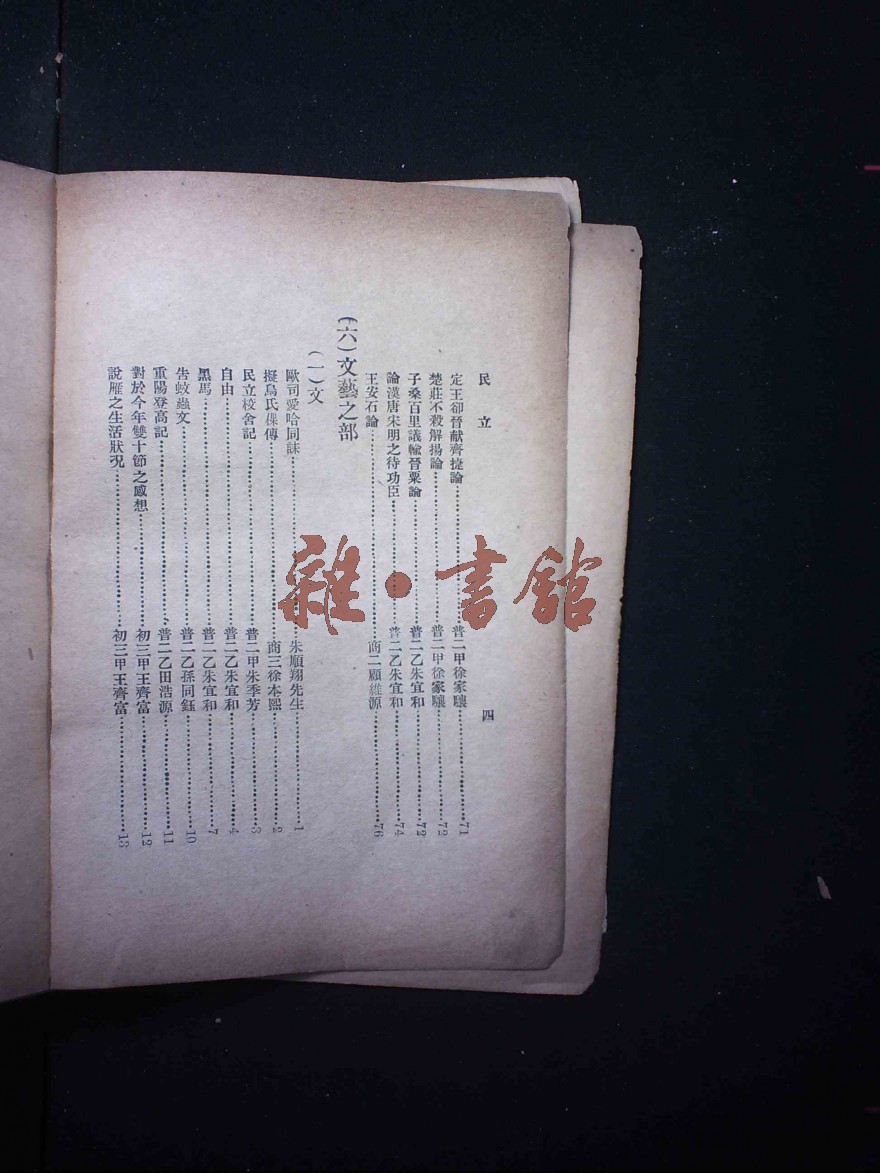 民立 四
定王卻晉献齊捷論 普二甲徐家驤 71
楚莊不殺解揚論 普二甲徐家驤 72
子桑百里議輸晉粟論 普二乙朱宜和 72
論漢唐宋明之待功臣 普二乙朱宜和 74
王安石論 商二顧維源 76
(六)文藝之部
(一)文
歐司愛哈同誄 朱順翔先生 1
擬烏氏倮傳 商三徐本熙 2
民立校舍記 普二甲朱季芳 3
自由 普二乙朱宜和 4
黑馬 普二乙朱宜和 7
告蚊蟲文 普二乙孫同鈺 10
重陽登高記 普二乙田浩源 11
對於今年雙十節之感想 初三甲王齊富 12
說雁之生活狀况 初三甲王齊富 13
雜·書館